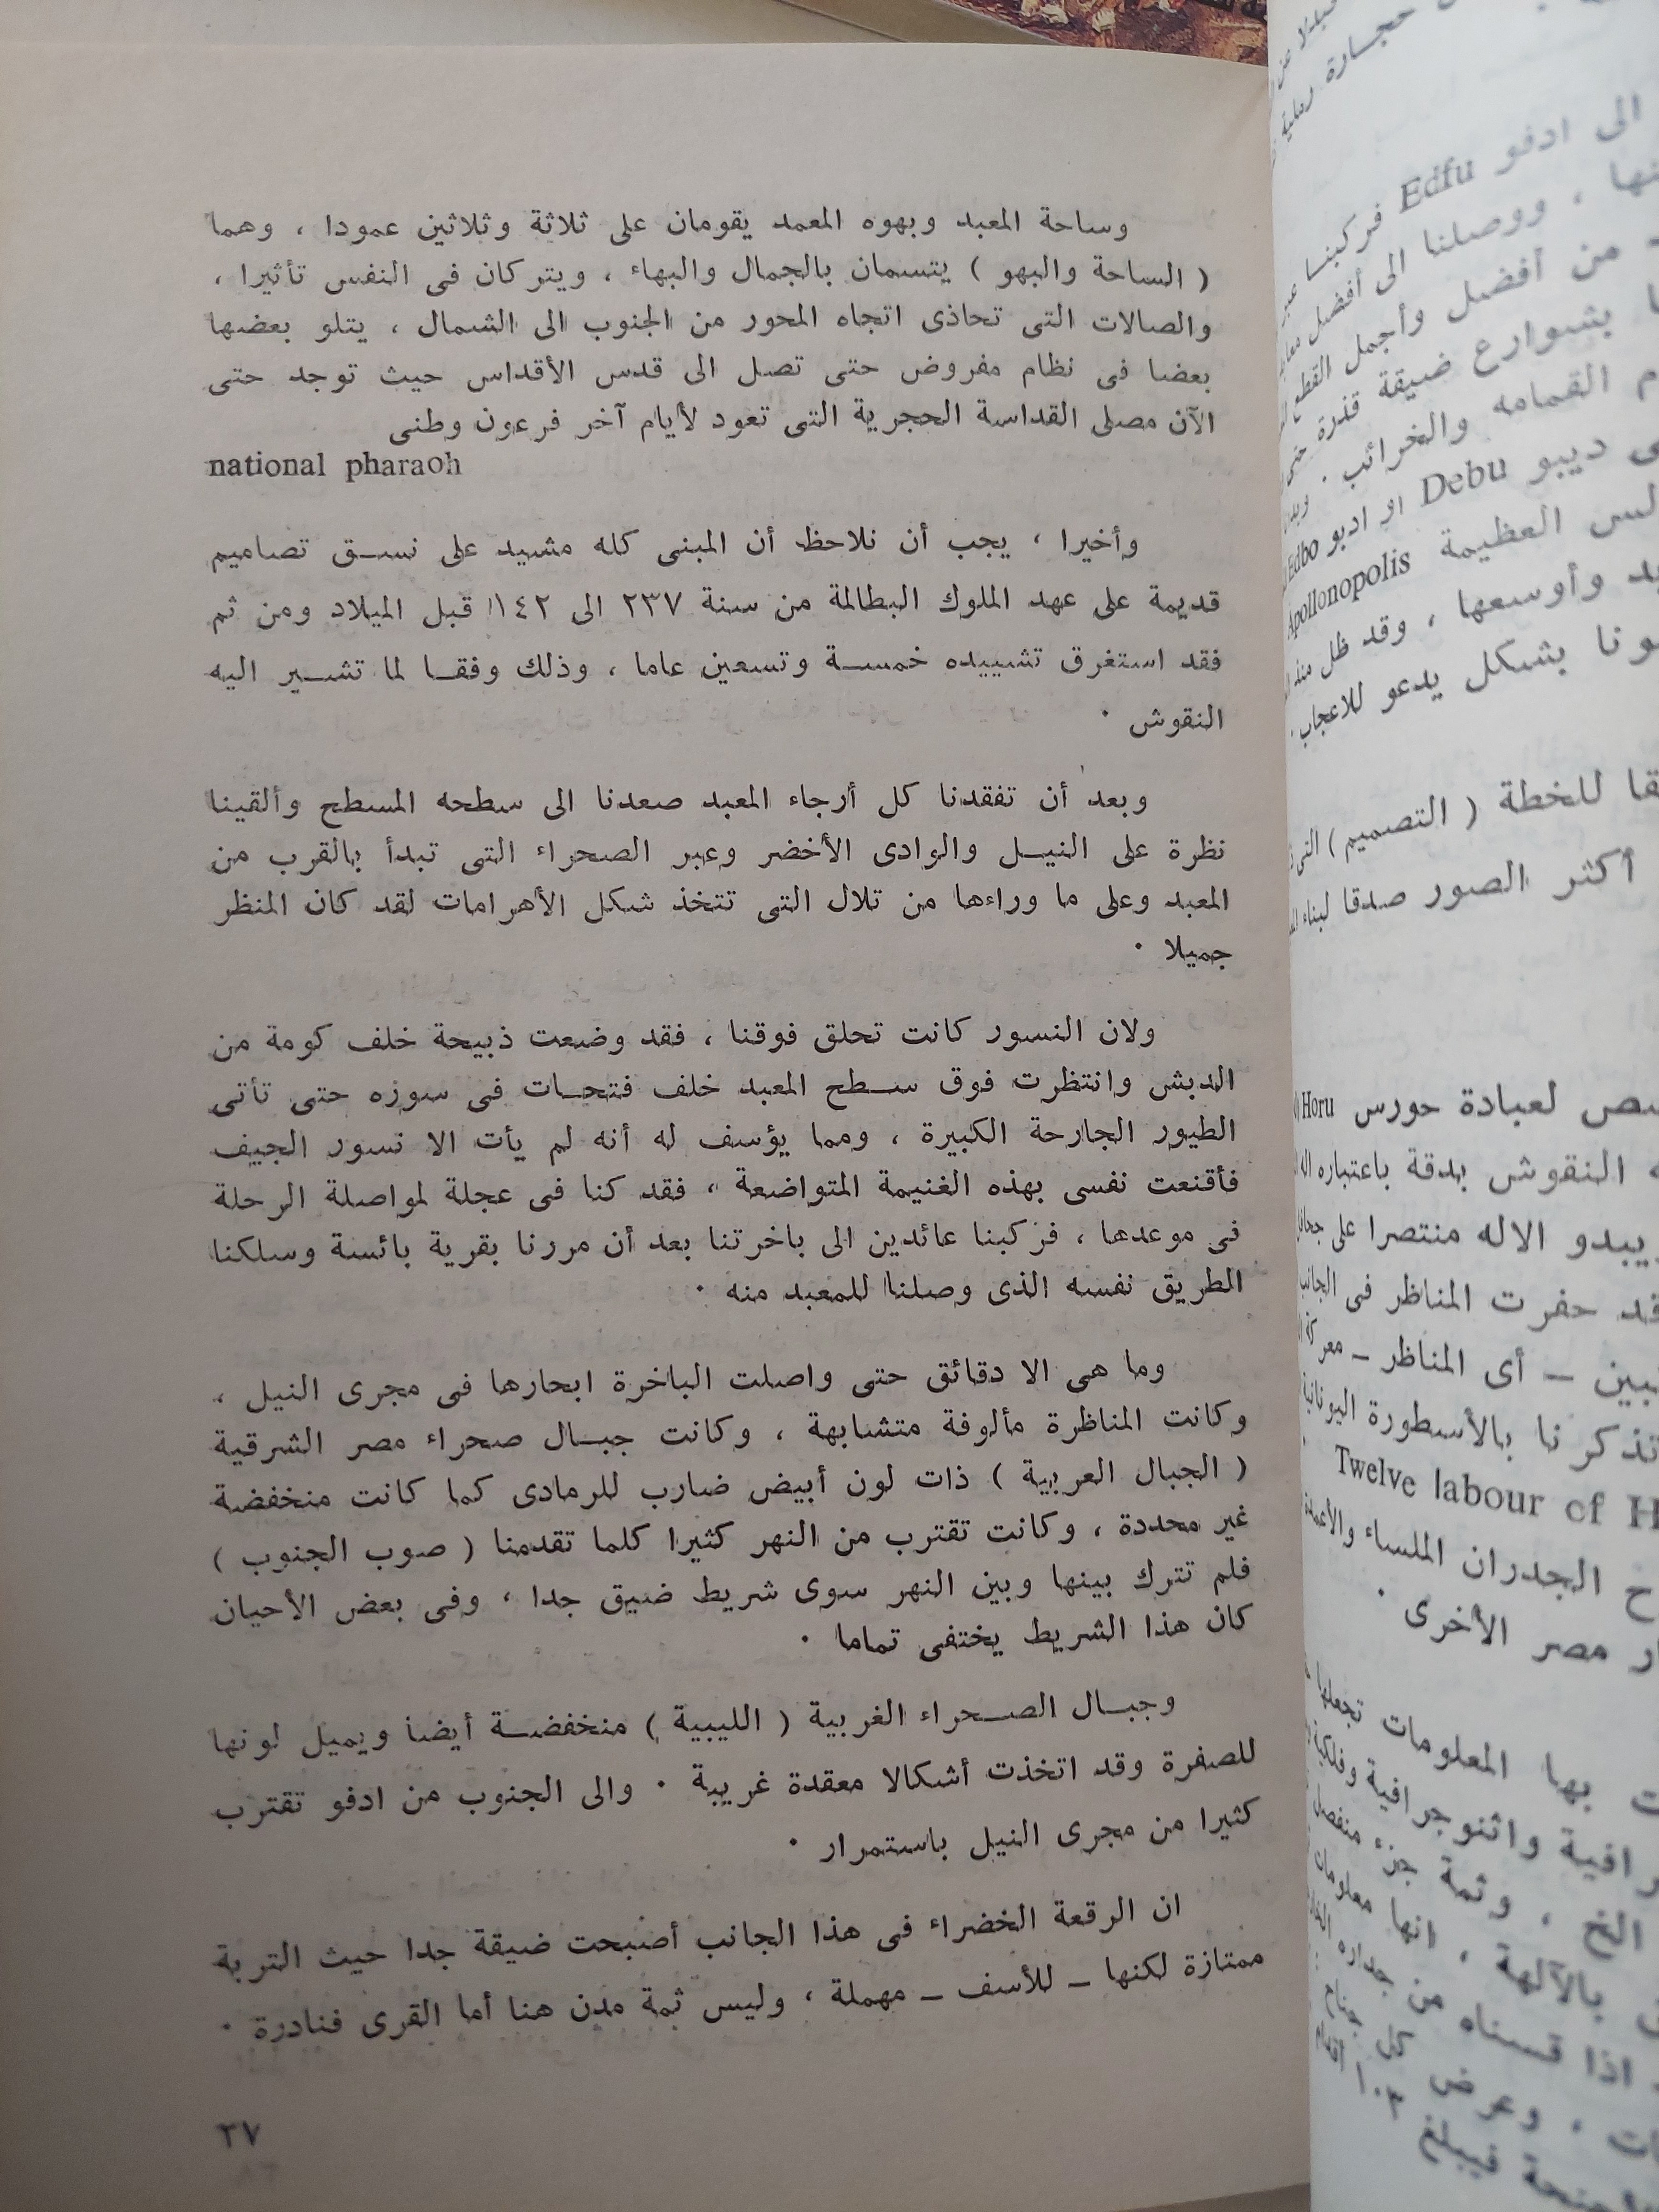 وساحة المعبد وبهوه المعمد يقومان على ثلاثة وثلاثين عمودا ، وهما
( الساحة والبهو ) يتسمان بالجمال والبهاء ، ويتركان فى النفس تأثيرا ،
والصالات التى تحاذى اتجاه المحور من الجنوب الى الشمال ، يتلو بعضها
بعضا فى نظام مفروض حتى تصل الى قدس الأقداس حيث توجد حتى
الآن مصلى القداسة الحجرية التى تعود لأيام آخر فرعون وطنى
national pharaoh
وأخيرا ، يجب أن نلاحظ أن المبنى كله مشيد على نسق تصاميم
قديمة على عهد الملوك البطالمة من سنة ٢٣٧ الى ١٤٢ قبل الميلاد ومن ثم
فقد استغرق تشييده خمسة وتسعين عاما ، وذلك وفقا لما تشير اليه
النقوش ٠
وبعد أن تفقدنا كل أرجاء المعبد صعدنا الى سطحه المسطح وألقينا
نظرة على النيل والوادى الأخضر وعبر الصحراء التى تبدأ بالقرب من
المعبد وعلى ما وراءها من تلال التى تتخذ شكل الأهرامات لقد كان المنظر
جميلا ٠
ولان النسور كانت تحلق فوقنا ، فقد وضعت ذبيحة خلف كومة من
الدبش وانتظرت فوق سطح المعبد خلف فتحات فى سوره حتى تأتى
الطيور الجارحة الكبيرة ، ومما يؤسف له أنه لم يأت الا نسور الجيف
فأقنعت نفسى بهذه الغنيمة المتواضعة ، فقد كنا فى عجلة لمواصلة الرحلة
فى موعدها ، فركبنا عائدين الى باخرتنا بعد أن مررنا بقرية بائسة وسلكنا
الطريق نفسه الذى وصلنا للمعبد منه ٠
وما هى الا دقائق حتى واصلت الباخرة ابحارها فى مجرى النيل ،
وكانت المناظرة مألوفة متشابهة ، وكانت جبال صحراء مصر الشرقية
( الجبال العربية ) ذات لون أبيض ضارب للرمادى كما كانت منخفضة
غير محددة ، وكانت تقترب من النهر كثيرا كلما تقدمنا ( صوب الجنوب )
فلم تترك بينها وبين النهر سوى شريط ضيق جدا ، وفى بعض الأحيان
كان هذا الشريط يختفى تماما ٠
وجبال الصحراء الغربية ( الليبية ) منخفضة أيضا ويميل لونها
للصفرة وقد اتخذت أشكالا معقدة غريبة ٠ والى الجنوب من ادفو تقترب
كثيرا من مجرى النيل باستمرار ٠
ان الرقعة الخضراء فى هذا الجانب أصبحت ضيقة جدا حيث التربة
ممتازة لكنها ــ للأسف ــ مهملة ، وليس ثمة مدن هنا أما القرى فنادرة ٠
٣٧
حجارة رملية
الى ادفو Edfu فركبنا عبر
، ووصلنا الى أفضل
من أفضل وأجمل القطع
بشوارع ضيقة قذرة حتى
القمامه والخرائب ٠
ديبو Debu او ادبو Edbo
العظيمة Apollonopolis
وأوسعها ، وقد ظل منذ
بشكل يدعو للاعجاب ٠
للخطة ( التصميم )
أكثر الصور صدقا لبناء
لعبادة حورس Horu
النقوش بدقة باعتباره
يبدو الاله منتصرا على
حفرت المناظر فى
ــ أى المناظر ــ معركة
تذكرنا بالأسطورة اليونانية
Twelve labour of H
الجدران الملساء
مصر الأخرى ٠
بها المعلومات تجعلها
واثنوجرافية وفلكية
الخ ، وثمة جزء منفصل
بالآلهة ، انها معلومات
اذا قسناه من جداره
، وعرض كل جناح
فيبلغ